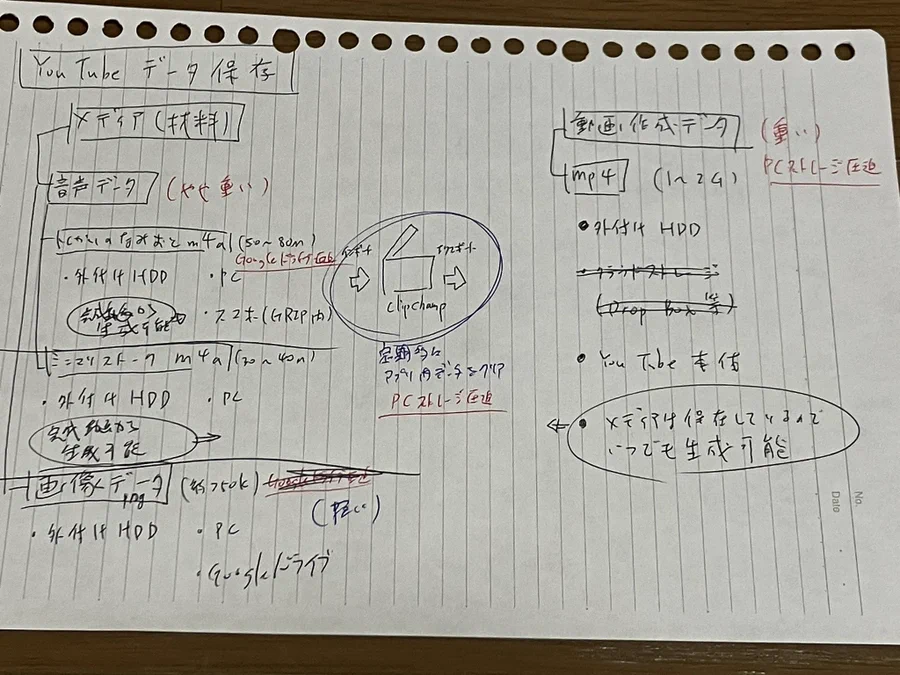 YouTube データ保存
メディア(材料)
音声データ (やや重い)
m4a (50~80m)
Googleドライブ圧迫
・外付けHDD ・PC
生成可能
・スマホ(GRIP内)
ミニマリストーク m4a (30~40m)
・外付けHDD ・PC
生成不能
画像データ (約750K)
png
(軽い)
・外付けHDD ・PC
・Googleドライブ
インポート
エクスポート
clipchamp
定期的に
アプリ内データをクリア
PCストレージ圧迫
動画作成データ (重い)
PCストレージ圧迫
mp4 (1~2G)
・外付けHDD
・クラウドストレージ
(Drop Box 等)
・YouTube 本体
・メディアは保存しているので
いつでも生成可能
No.
Date